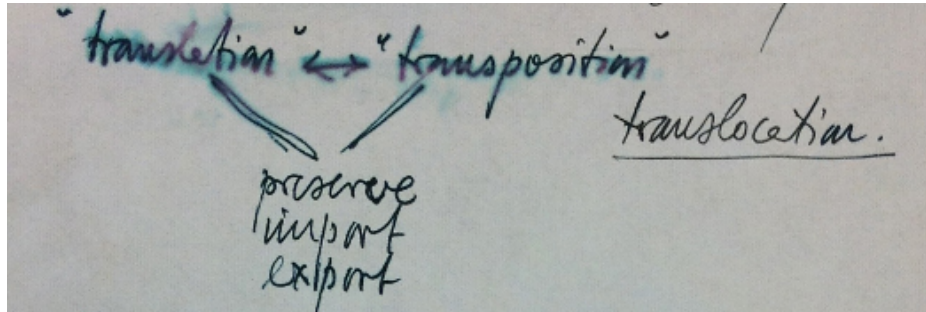 "translation" ↔ "transposition"
translocation.
preserve
import
export